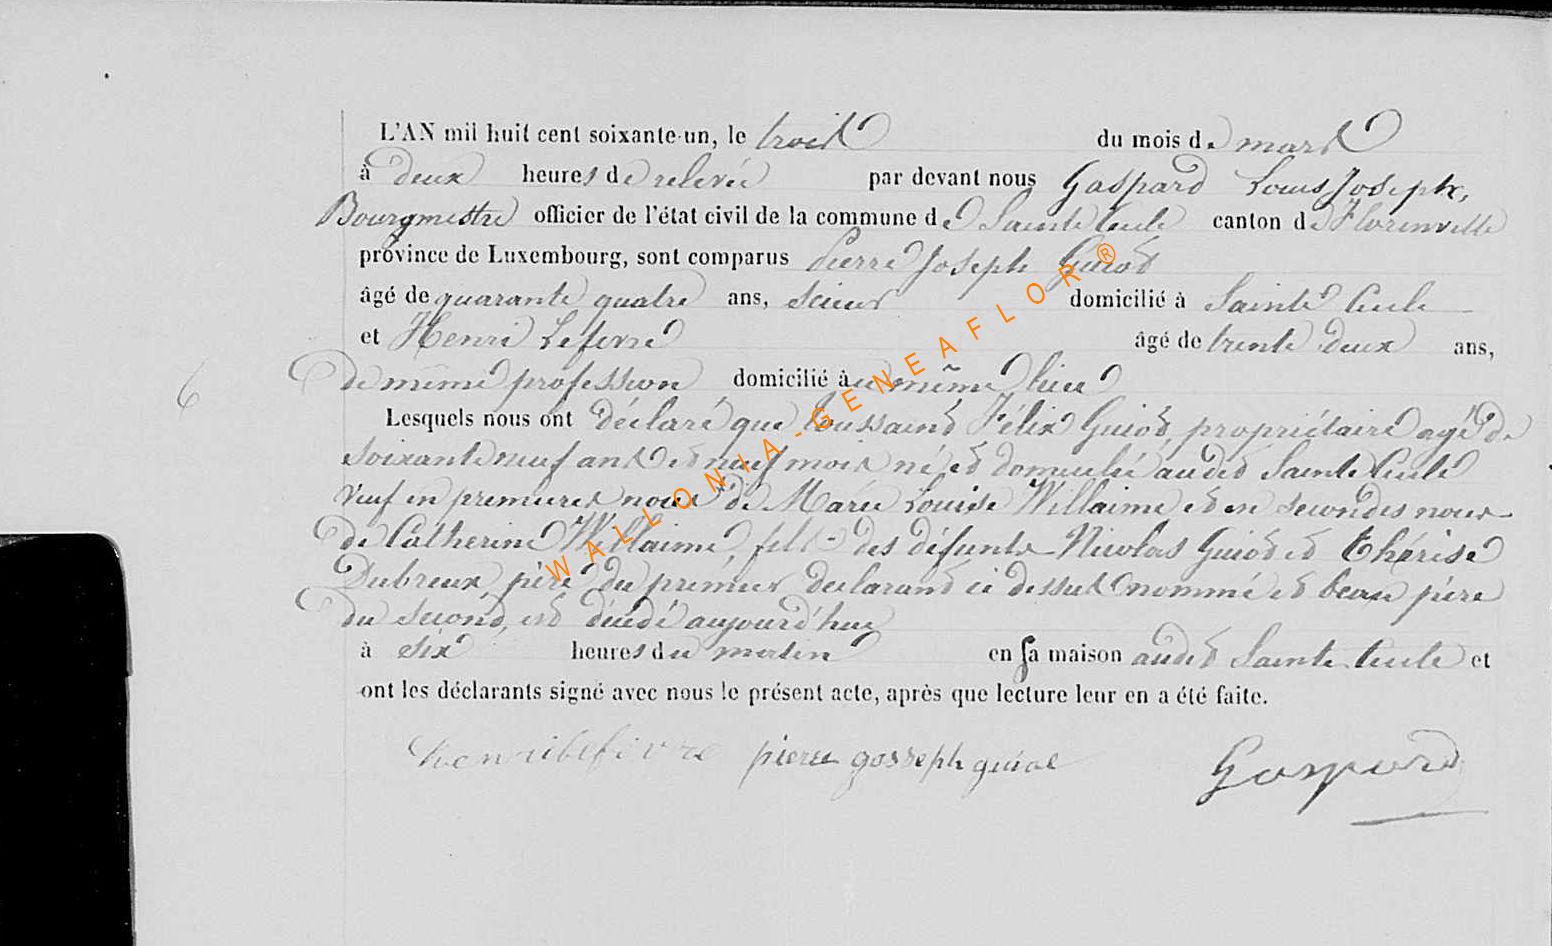 L'AN mil huit cent soixante-un, le trois du mois de mars
à deux heures de relevée par devant nous Gaspard Louis Joseph,
Bourgmestre officier de l'état civil de la commune de Sainte Cecile canton de Florenville
province de Luxembourg, sont comparus Pierre Joseph Guiot
âgé de quarante quatre ans, scieur domicilié à Sainte Cecile
et Henri Lefevre âgé de trente deux ans,
6 de même profession domicilié au même lieu
Lesquels nous ont déclaré que Toussaint Félix Guiot, propriétaire agé de
soixante neuf ans et neuf mois né et domicilié audit Sainte Cecile
veuf en premieres noces de Marie Louise Willaime et en secondes noces
de Catherine Willaime, fils des défunts Nicolas Guiot et Thérèse
Dubreux, père du prémier declarant ci dessus nommé et beau père
du second, est décédé aujourd'hui
à six heures du matin en sa maison audit Sainte Cecile et
ont les déclarants signé avec nous le présent acte, après que lecture leur en a été faite.
henri lefivre pierre gosseph guiot Gaspard
WALLONIA-GENEAFLOR®